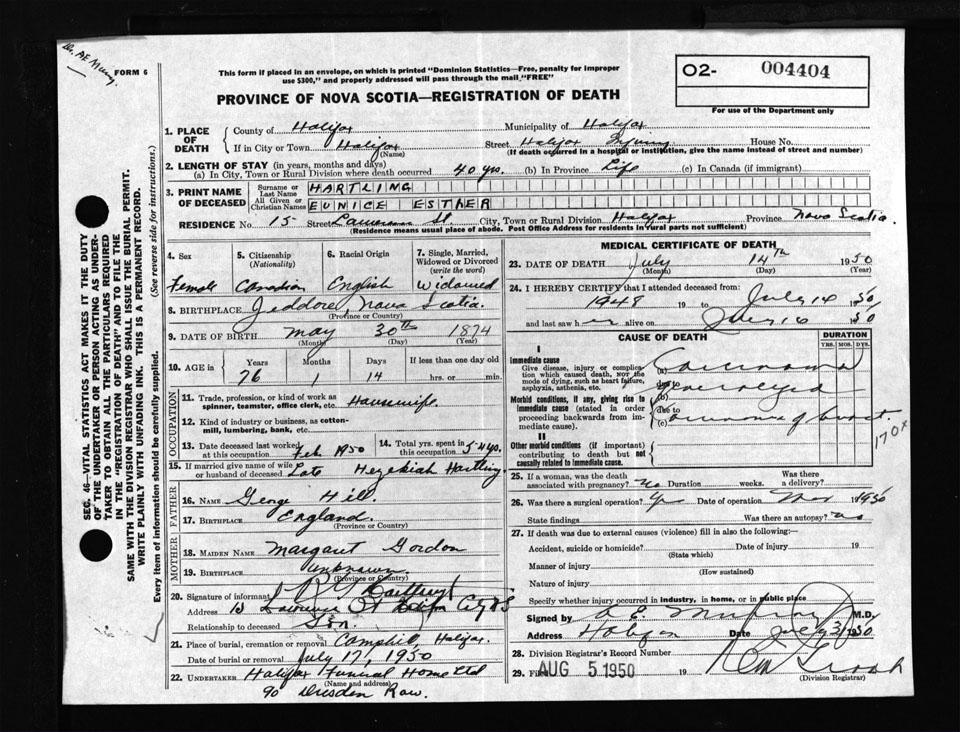 FORM 6
This form if placed in an envelope, on which is printed "Dominion Statistics—Free, penalty for improper
use $300," and properly addressed will pass through the mail "FREE"
PROVINCE OF NOVA SCOTIA—REGISTRATION OF DEATH
O2- 004404
For use of the Department only
SEC. 46—VITAL STATISTICS ACT MAKES IT THE DUTY
OF THE UNDERTAKER OR PERSON ACTING AS UNDER-
TAKER TO OBTAIN ALL THE PARTICULARS REQUIRED
IN THE "REGISTRATION OF DEATH" AND TO FILE THE
SAME WITH THE DIVISION REGISTRAR WHO SHALL ISSUE THE BURIAL PERMIT.
WRITE PLAINLY WITH UNFADING INK. THIS IS A PERMANENT RECORD.
Every item of information should be carefully supplied. (See reverse side for instructions.)
1. PLACE OF DEATH
County of Halifax Municipality of Halifax
If in City or Town Halifax Street Halifax Infirmary House No.
(Name) (If death occurred in a hospital or institution, give the name instead of street and number)
2. LENGTH OF STAY (in years, months and days)
(a) In City, Town or Rural Division where death occurred 40 yrs. (b) In Province Life (c) In Canada (if immigrant)
3. PRINT NAME OF DECEASED
Surname or Last Name HARTLING
All Given or Christian Names EUNICE ESTHER
RESIDENCE No. 15 Street St City, Town or Rural Division Halifax Province Nova Scotia
(Residence means usual place of abode. Post Office Address for residents in rural parts not sufficient)
4. Sex Female
5. Citizenship (Nationality) Canadian
6. Racial Origin English
7. Single, Married, Widowed or Divorced (write the word) Widowed
8. BIRTHPLACE Jeddore, Nova Scotia.
(Province or Country)
9. DATE OF BIRTH May 30th 1874
(Month) (Day) (Year)
10. AGE in Years 76 Months 1 Days 14 If less than one day old hrs. or min.
OCCUPATION
11. Trade, profession, or kind of work as
spinner, teamster, office clerk, etc. Housewife
12. Kind of industry or business, as cotton-
mill, lumbering, bank, etc.
13. Date deceased last worked at this occupation Feb 1950
14. Total yrs. spent in this occupation 54 yrs.
15. If married give name of wife or husband of deceased Late Hezekiah Hartling
FATHER
16. NAME George Hill
17. BIRTHPLACE England.
(Province or Country)
MOTHER
18. MAIDEN NAME Margaret Gordon
19. BIRTHPLACE Unknown
(Province or Country)
20. Signature of informant Hartling
Address 15 St City
Relationship to deceased Son.
21. Place of burial, cremation or removal Camphill, Halifax.
Date of burial or removal July 17, 1950
22. UNDERTAKER Halifax Funeral Home Ltd
(Name and address)
90 Dresden Row.
MEDICAL CERTIFICATE OF DEATH
23. DATE OF DEATH July 14th 1950
(Month) (Day) (Year)
24. I HEREBY CERTIFY that I attended deceased from:
1949 19 to July 14 1950
and last saw her alive on July 1950
CAUSE OF DEATH
DURATION
YRS. MOS. DYS.
I
Immediate cause
Give disease, injury or complica-
tion which caused death, NOT the
mode of dying, such as heart failure,
asphyxia, asthenia, etc.
(a) Carcinoma
Generalized
Morbid conditions, if any, giving rise to
immediate cause (stated in order
proceeding backwards from im-
mediate cause).
(b)
due to
(c) Carcinoma of breast
170x
II
Other morbid conditions (if important)
contributing to death but not
causally related to immediate cause.
25. If a woman, was the death associated with pregnancy? No Duration weeks. Was there a delivery?
26. Was there a surgical operation? Yes Date of operation 1950
State findings Was there an autopsy? no
27. If death was due to external causes (violence) fill in also the following:—
Accident, suicide or homicide? Date of injury 19
(State which)
Manner of injury
(How sustained)
Nature of injury
Specify whether injury occurred in industry, in home, or in public place
Signed by M.D.
Address Halifax Date July 1950
28. Division Registrar's Record Number
29. Filed AUG 5 1950 19
(Division Registrar)